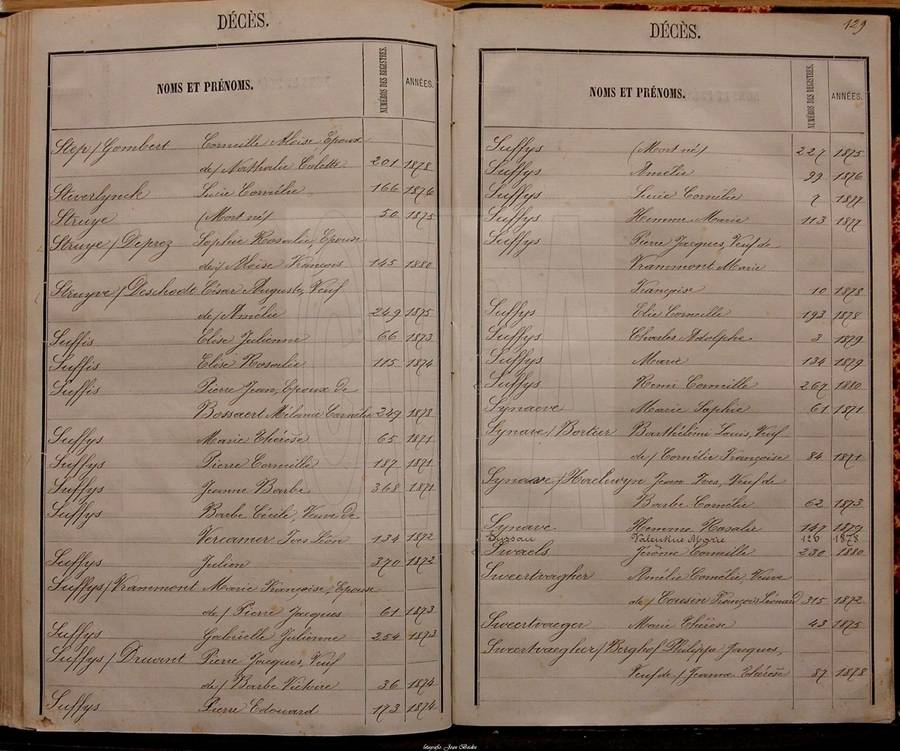 DÉCÈS.
NOMS ET PRÉNOMS. NUMÉROS DES REGISTRES. ANNÉES.
Step / Gombert Corneille Aloise, Epoux
de / Nathalie Calette 201 1878
Steverlynck Lucie Cornélie 166 1876
Struye (Mort né) 50 1875
Struye / Deprez Sophie Rosalie, Epouse
de / Aloïse François 145 1880
Struyve / Deschodt César Auguste, Veuf
de / Amélie 249 1875
Suffis Elise Julienne 66 1873
Suffis Elise Rosalie 115 1874
Suffis Pierre Jean, Epoux de
Bossaert Mélanie Cornélie 249 1878
Suffys Marie Thérèse 65 1871
Suffys Pierre Corneille 187 1871
Suffys Jeanne Barbe 368 1871
Suffys Barbe Cécile, Veuve de
Vercamer Ives Léon 134 1872
Suffys Julien 370 1872
Suffys / Vrammont Marie Françoise, Epouse
de / Pierre Jacques 61 1873
Suffys Gabrielle Julienne 254 1873
Suffys / Druant Pierre Jacques, Veuf
de / Barbe Victoire 36 1874
Suffys Pierre Edouard 173 1874
129
DÉCÈS.
NOMS ET PRÉNOMS. NUMÉROS DES REGISTRES. ANNÉES.
Suffys (Mort né) 227 1875
Suffys Amélie 99 1876
Suffys Lucie Cornélie 2 1877
Suffys Hemma Marie 113 1877
Suffys Pierre Jacques, Veuf de
Vrammont Marie
Françoise 10 1878
Suffys Elie Corneille 193 1878
Suffys Charles Adolphe 3 1879
Suffys Marie 134 1879
Suffys Remi Corneille 267 1880
Synaeve Marie Sophie 61 1871
Synave / Bortier Barthélémi Louis, Veuf
de / Cornélie Françoise 84 1871
Synaeve / Haelewyn Jean Ives, Veuf de
Barbe Cornélie 62 1873
Synave Hemma Rosalie 147 1879
Valentine Marie 126 1878
Swaels Jérôme Corneille 230 1880
Sweertvagher Amélie Cornélie, Veuve
de / François Léonard 315 1872
Sweertvaeger Marie Thérèse 43 1875
Sweertvaegher / Berghof Philippe Jacques,
Veuf de / Jeanne Thérèse 87 1878
fotografie Jean Backx